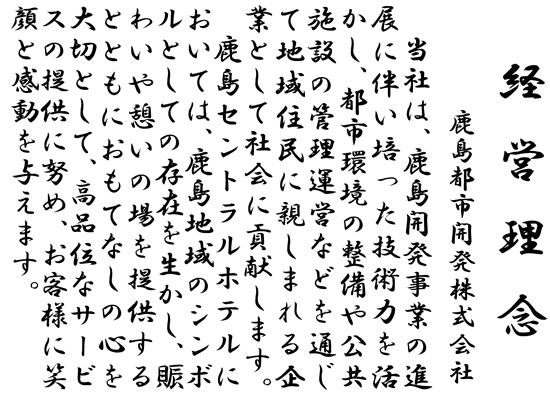 経営理念
鹿島都市開発株式会社
当社は、鹿島開発事業の進
展に伴い培った技術力を活
かし、都市環境の整備や公共
施設の管理運営などを通じ
て地域住民に親しまれる企
業として社会に貢献します。
鹿島セントラルホテルに
おいては、鹿島地域のシンボ
ルとしての存在を生かし、賑
わいや憩いの場を提供する
とともにおもてなしの心を
大切として、高品位なサービ
スの提供に努め、お客様に笑
顔と感動を与えます。